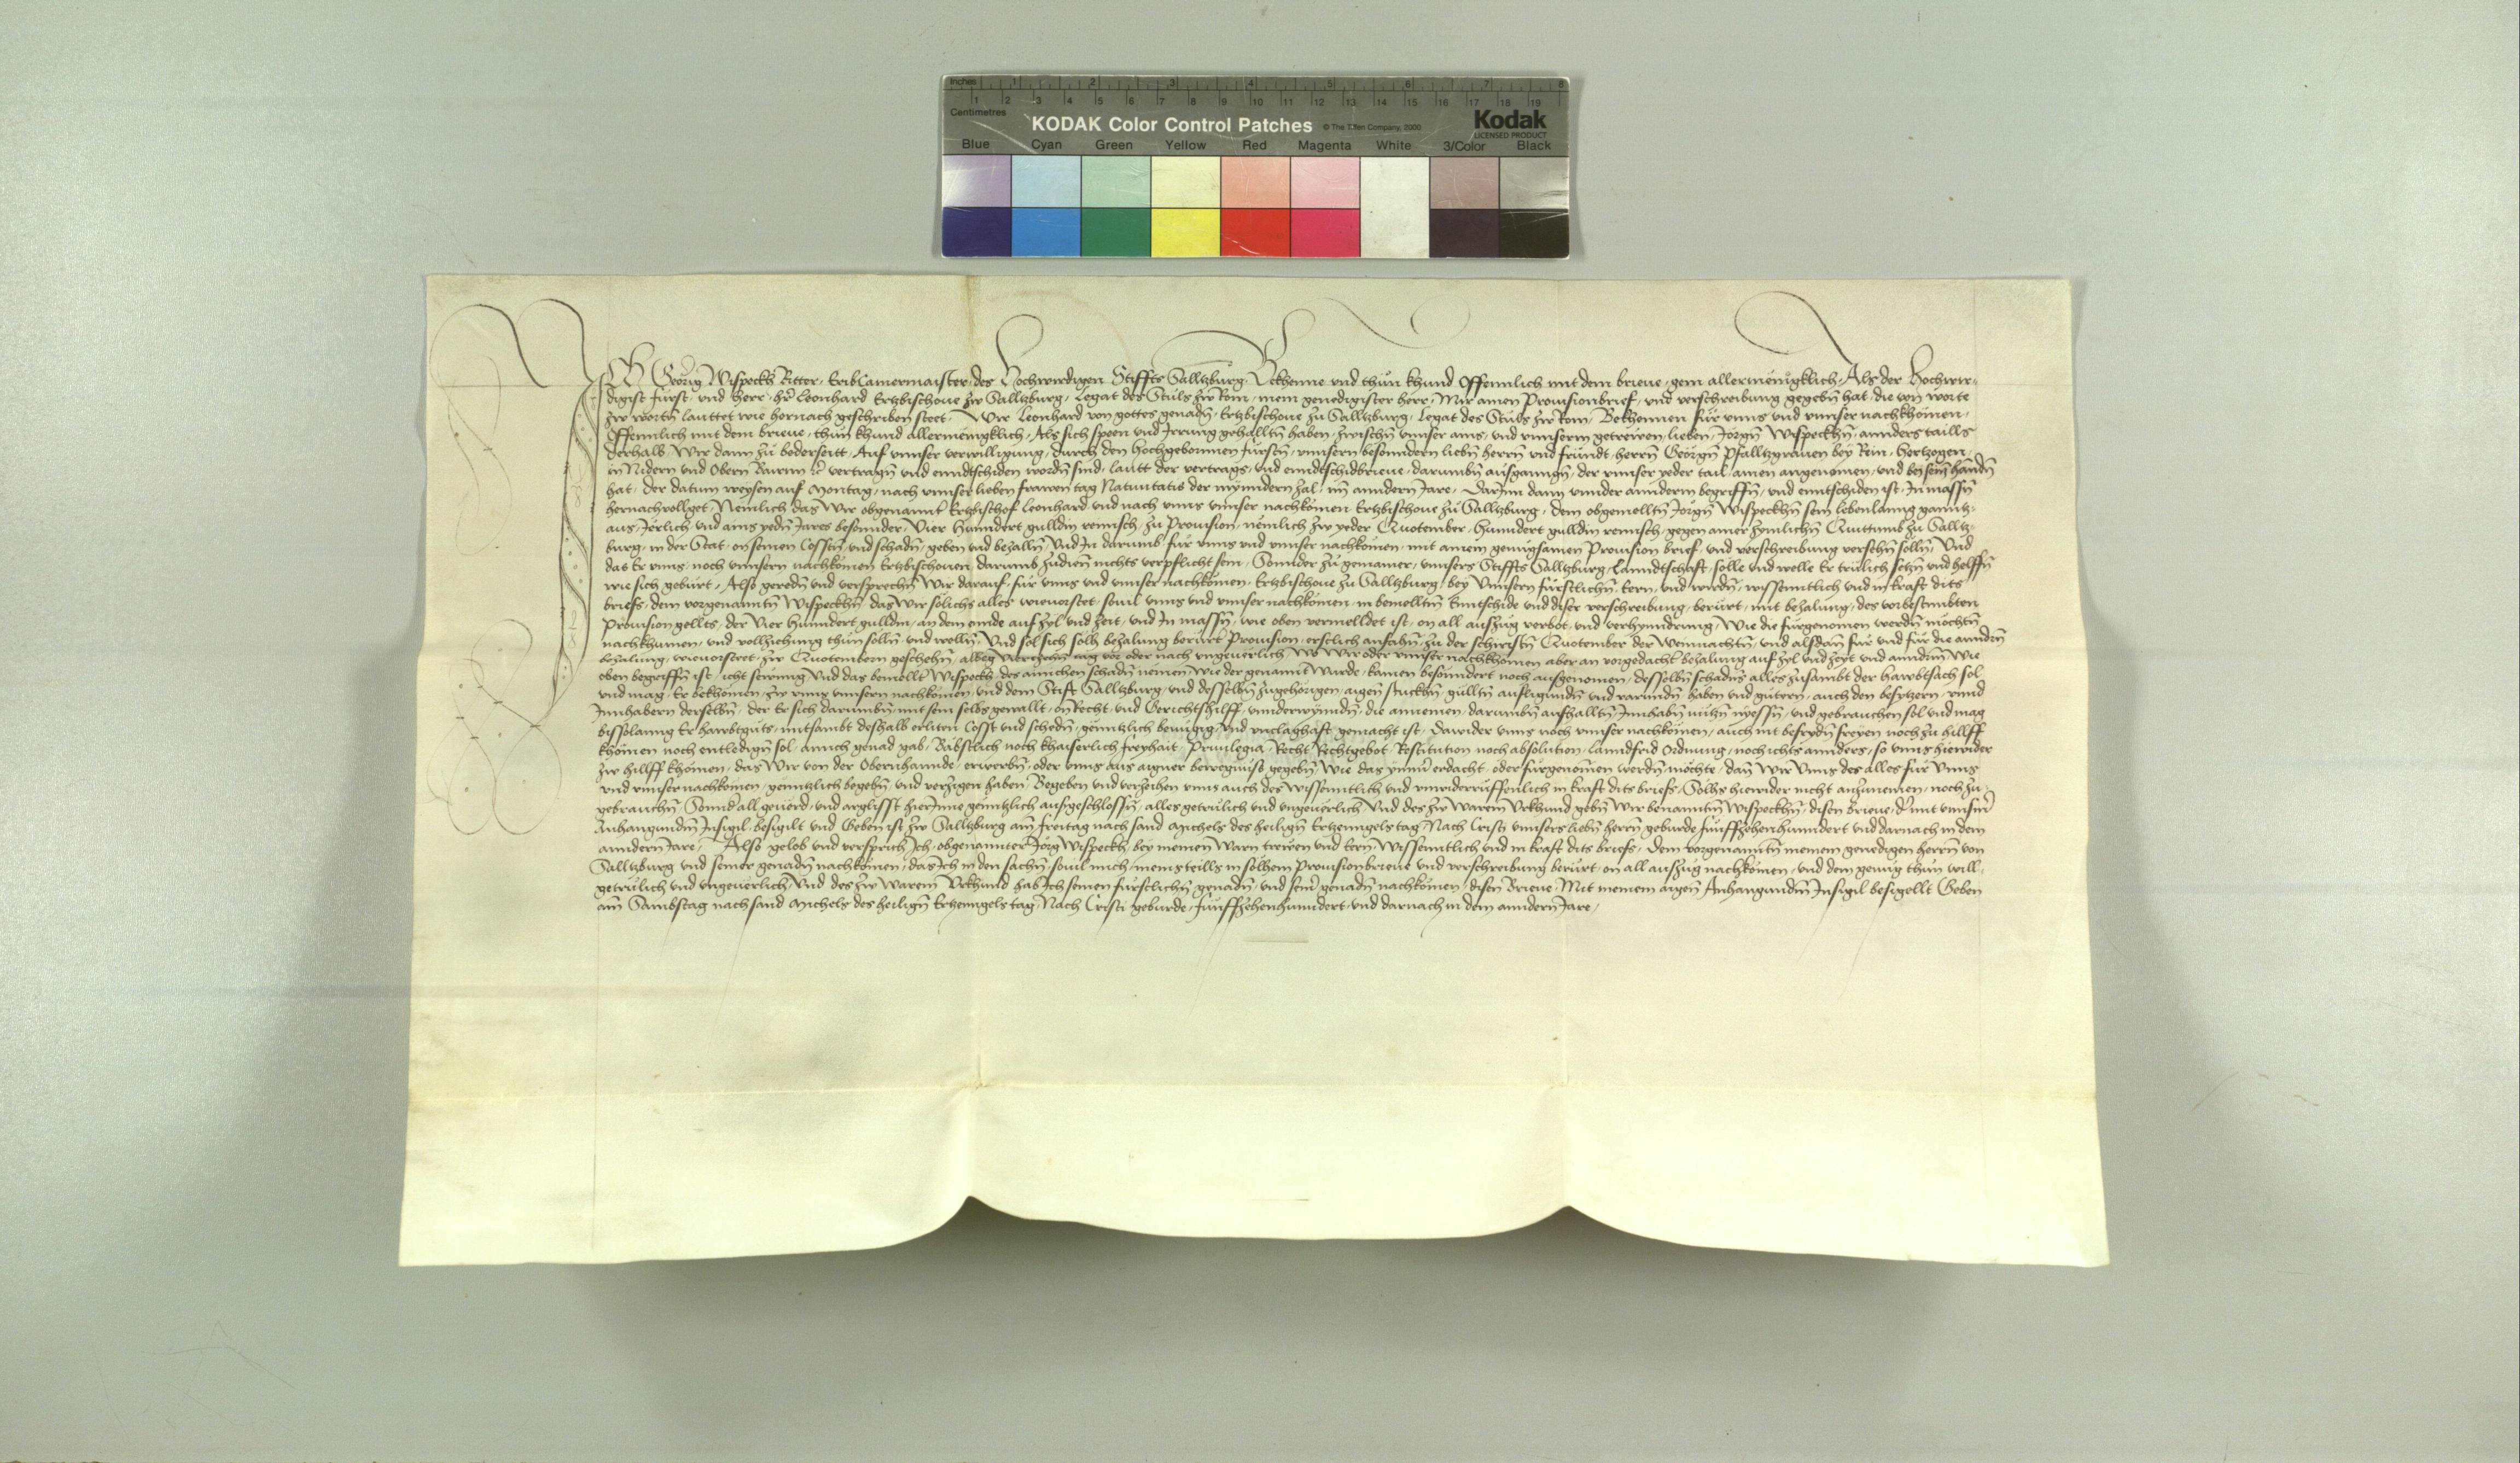 Inches 1 2 3 4 5 6 7 8
1 2 3 4 5 6 7 8 9 10 11 12 13 14 15 16 17 18 19
Centimetres
KODAK Color Control Patches © The Tiffen Company, 2000 Kodak
LICENSED PRODUCT
Blue Cyan Green Yellow Red Magenta White 3/Color Black
Ich Georig Wispeckh Ritter, Erbcamermaister des Hochwirdigen Stiffts Salltzburg, Bekhenne vnd thun khund Offennlich mit dem brieue, gem allermenigklich, Als der Hochwir-
digist fürst, vnd herr, hr̄ Leonhard Ertzbischoue zw Salltzburg, Legat des Stuls zw Rom, mein genedigister herr, Mir ainen Prouisionbrief, vnd verschreibung gegebn̄ hat, die von worte
zw wortn̄ lauttet wie hernach geschriben steet, Wir Leonhard von gottes genadn̄, Ertzbischoue zu Salltzburg, Legat des Stuls zw Rom, Bekhennen für vnns vnd vnnser nachkömen,
Offennlich mit dem brieue, thun khund allermenigklich, Als sich speen vnd Irrung gehalltn̄ haben, zwischn̄ vnnser ains, vnd vnnserm getrewen, lieben, Jörgn̄ Wispeckhn̄, annders taills
derhalb, Wir dann zu bederseitt, Auf vnnser verwilligung, durch den Hochgebornnen fürstn̄, vnnsern besonndern liebn̄ herrn̄ vnd fründt, herrn̄ Georgn̄ Pfalltzgrauen bey Rein, Hertzogen,
in Nidern vnd Obern Bairnn rc̄ vertragn̄ vnd enndtschiden wordn̄ sind, lautt der vertrags, vnd enndtschidbrieue, darumbn̄ ausganngn̄, der vnnser yeder tail ainen angenomen, vnd bey sein̄ handn̄
hat, der datum weysen auf Montag, nach vnnser lieben frawen tag Natiuitatis der mynndern zal, im anndern Jare, Darinn dann vnnder annderm begriffn̄, vnd enntschiden ist, In massn̄
hernachvollget, Nemlich das Wir obgenannt̄ Ertzbischof Leonhard vnd nach vnns vnnser nachkömen Ertzbischoue zu Salltzburg, dem obgemelltn̄ Jörgn̄ Wispeckhn̄ sein lebenlanng ganntz
aus, Jerlich vnd ains yedn̄ Jares besonnder, Vier Hunndert gulldin reinisch, zu Prouision, nemlich zw yeder Quotember, Hunndert gulldin reinisch, gegen ainer zymlichn̄ Quittumb zu Salltz-
burg, in der Stat, on seinen Cosstn̄, vnd schadn̄, geben vnd bezalln̄, Vnd In darumb für vnns vnd vnnser nachkömen, mit ainem genugsamen Prouision brief, vnd verschreibung versehn̄ solln̄, Vnd
das Er vnns, noch vnnsern nachkömen Ertzbischouen, darumb zudien̄ nichts verpflicht sein, Sonnder zu gemainer, vnnsers Stiffts Salltzburg, Lanndtschaft, solle vnd welle Er trulich setzn̄ vnd helffn̄
wie sich gebürt, Also geredn̄ vnd versprechn̄ Wir darauf, für vnns vnd vnnser nachkömen, Ertzbischoue zu Salltzburg, bey Vnnsern fürstlichn̄, Eern, vnd wirdn̄, wissenntlich vnd in kraft dits
briefs, dem vorgenanntn̄ Wispeckhn̄, das Wir solichs alles, wieuorsteet, souil vnns vnd vnnser nachkömen, in bemelltm̄ Enntschide vnd diser verschreibung, berürt, mit bezalung, des vorbestimbten
Prouision gellts, der Vier Hunndert gulldin, an dem ennde auf zyl vnd zeit, vnd In massn̄, wie oben vermelldet ist, on all auszüg verbot, vnd verhynndrung, Wie die fürgenomen werdn̄ möchtn̄
nachkhumen, vnd vollziehung thun solln̄, vnd welln̄, Vnd sol sich solh bezalung berürt Prouision, erstlich anfahn̄, zu der schiristn̄ Quotember der Weinnachtn̄, vnd alsdan̄ für vnd für die anndrn̄
bezalung, wieuorsteet, zw Quotembern geschehn̄, albeg Viertzehn̄ tag vor oder nach vngeuerlich, Wo Wir oder vnnser nachkhomen aber an vorgedacht bezalung auf zyl vnd zeyt vnd anndrm̄ Wie
oben begriffn̄ ist, icht sewmig Vnd das bemellt Wispeckh, des ainichen schadn̄ nemen̄ Wie der genannt Wurde, kainen besonndert noch ausgenomen, desselbn̄ schadns alles zusambt der Hawbtsach sol
vnd mag, Er bekhomen, zw vnns vnnsern nachkömen, vnd dem Stift Salltzburg, vnd desselbn̄ zugehörigen, aigen̄ stuckhn̄, gülltn̄ aufligundn̄ vnd varundn̄ haben vnd gütern, auch den besytzern, vnnd
Innhabern derselbn̄, der Er sich darumbn̄ mit sein selbs gewallt, on̄ Recht, vnd Gerichtzhilff, vnnderwynndn̄, die annemen, darumbn̄ aufhalltn̄ Innhabn̄ nützn̄ nyessn̄, vnd gebrauchen sol vnd mag
bissolanng Er hawbtguts, mitsambt deshalb erliten Cosst vnd schedn̄, genntzlich benugig, vnd vnclaghaft gemacht ist, Dawider vnns noch vnnser nachkömen, auch nit befrydn̄ freyen noch zu hillff
khömen noch entledign̄ sol, ainich genad gab, Bäbstlich noch khaiserlich freyhait, Priuilegia, Recht Rechtgebot, Restitution noch absolution, lanndfrid Ordnung, noch ichts annders, so vnns hiewider
zw hillff khömen, das Wir von der Obernhannde, erwerbn̄, oder vnns aus aigner bewegnuss gegebn̄, Wie das ymm̄ erdacht, oder fürgenomen werdn̄ möchte, dan̄ Wir Vnns des alles für Vnns
vnd vnnser nachkömen, genntzlich begebn̄, vnd verzigen haben, Begeben vnd verzeihen vnns auch des Wissenntlich vnd vnwiderrüffenlich in kraft dits briefs, Solhs hiewider nicht anzunemen, noch zu
gebrauchn̄, Sonnd̄ all geuerd, vnd arglisst hierInne genntzlich ausgeschlossn̄, alles getrülich vnd vngeuerlich, Vnd des zw Warem Vrkhund gebn̄ Wir benanntn̄ Wispeckhn̄, disen brieue, mit vnnserm̄
Anhangundn̄ Insigil, besigilt vnd Geben ist zw Salltzburg am̄ freitag nach sand Michels des heilign̄ Ertzenngels tag, Nach Cristi vnnsers liebn̄ herrn̄ geburde, fünffzehenhunndert vnd darnach in dem
anndern Jare, Also gelob vnd versprich Ich, obgenannter Jörg Wispeckh, bey meinen Warn trewen vnd Eern, Wissenntlich vnd in kraft dits briefs, Dem vorgenanntn̄ meinem genedigen herrn̄ von
Salltzburg vnd seiner genadn̄ nachkömen, das Ich in den sachn̄, souil mich, meins teills in solhem Prouisionbrieue vnd verschreibung berürt, on all auszug nachkömen, vnd dem genug thun will,
getrülich vnd vngeuerlich, Vnd des zw Warem Vrkhund hab Ich seinen fürstlichn̄ genadn̄, vnd sein̄ genadn̄ nachkömen, disen Brieue, Mit meinem aigen̄ Anhangundm̄ Insigil besigellt Geben
am̄ Sambstag nach sand Michels des heilign̄ Ertzenngels tag, Nach Cristi geburde, funffzehenhunndert, vnd darnach in dem anndern Jare,